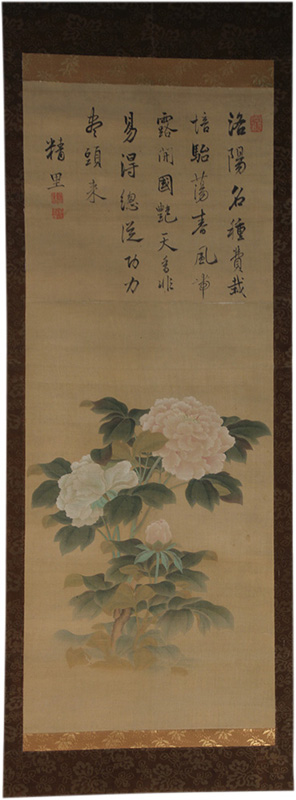 洛陽名種費栽
培駘蕩春風沛
露開國艶天香非
易得總從功力
尽頭来
精里